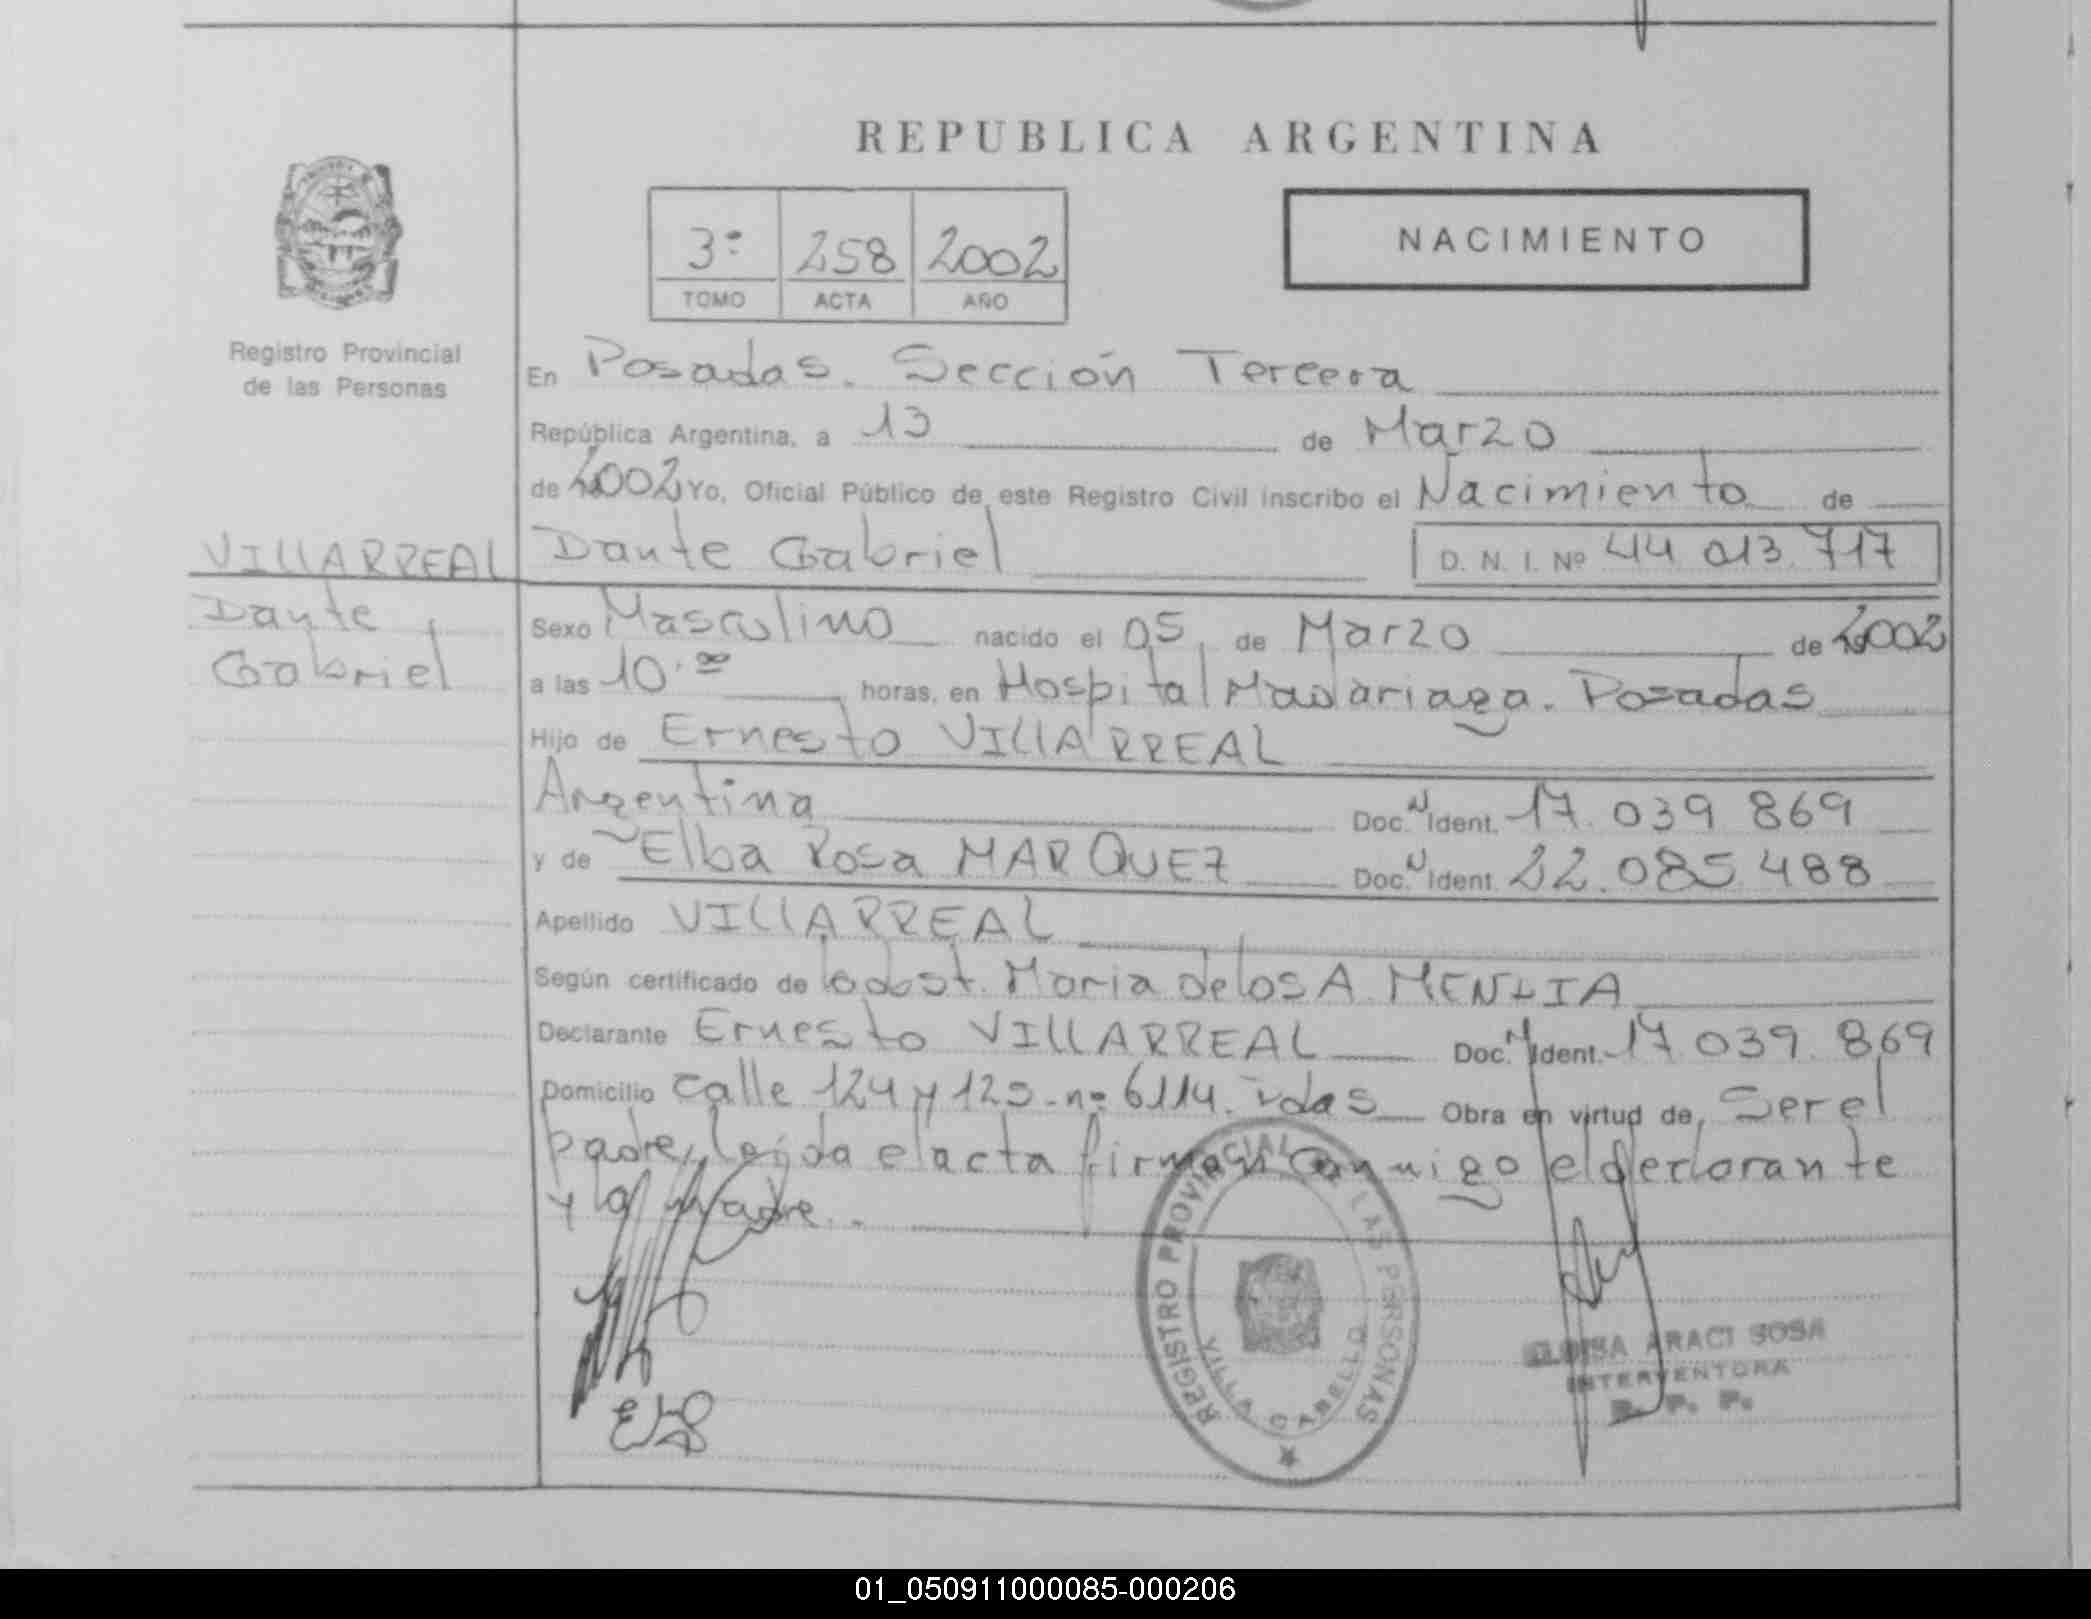 REPUBLICA ARGENTINA
3º 258 2002
TOMO ACTA AÑO
NACIMIENTO
Registro Provincial
de las Personas
En Posadas. Sección Tercera
República Argentina, a 13 de Marzo
de 2002 Yo, Oficial Público de este Registro Civil inscribo el Nacimiento de
VILLARREAL
Dante
Gabriel
Dante Gabriel D. N. I. Nº 44 013.717
Sexo Masculino nacido el 05 de Marzo de 2002
a las 10.00 horas, en Hospital Madariaga. Posadas
Hijo de Ernesto VILLARREAL
Argentina Doc. N Ident. 17.039 869
y de Elba Rosa MARQUEZ Doc. N Ident. 22.085.488
Apellido VILLARREAL
Según certificado de Maria de los A.
Declarante Ernesto VILLARREAL Doc. N Ident. 17 039.869
Domicilio calle 124 y 125 - nº 6114. Obra en virtud de, Ser el
padre, leída el acta firman conmigo el declarante
y la madre.
REGISTRO PROVINCIAL DE LAS PERSONAS
VILLA CABELLO
ARACI SOSA
INTERVENTORA
R. P. P.
01_050911000085-000206